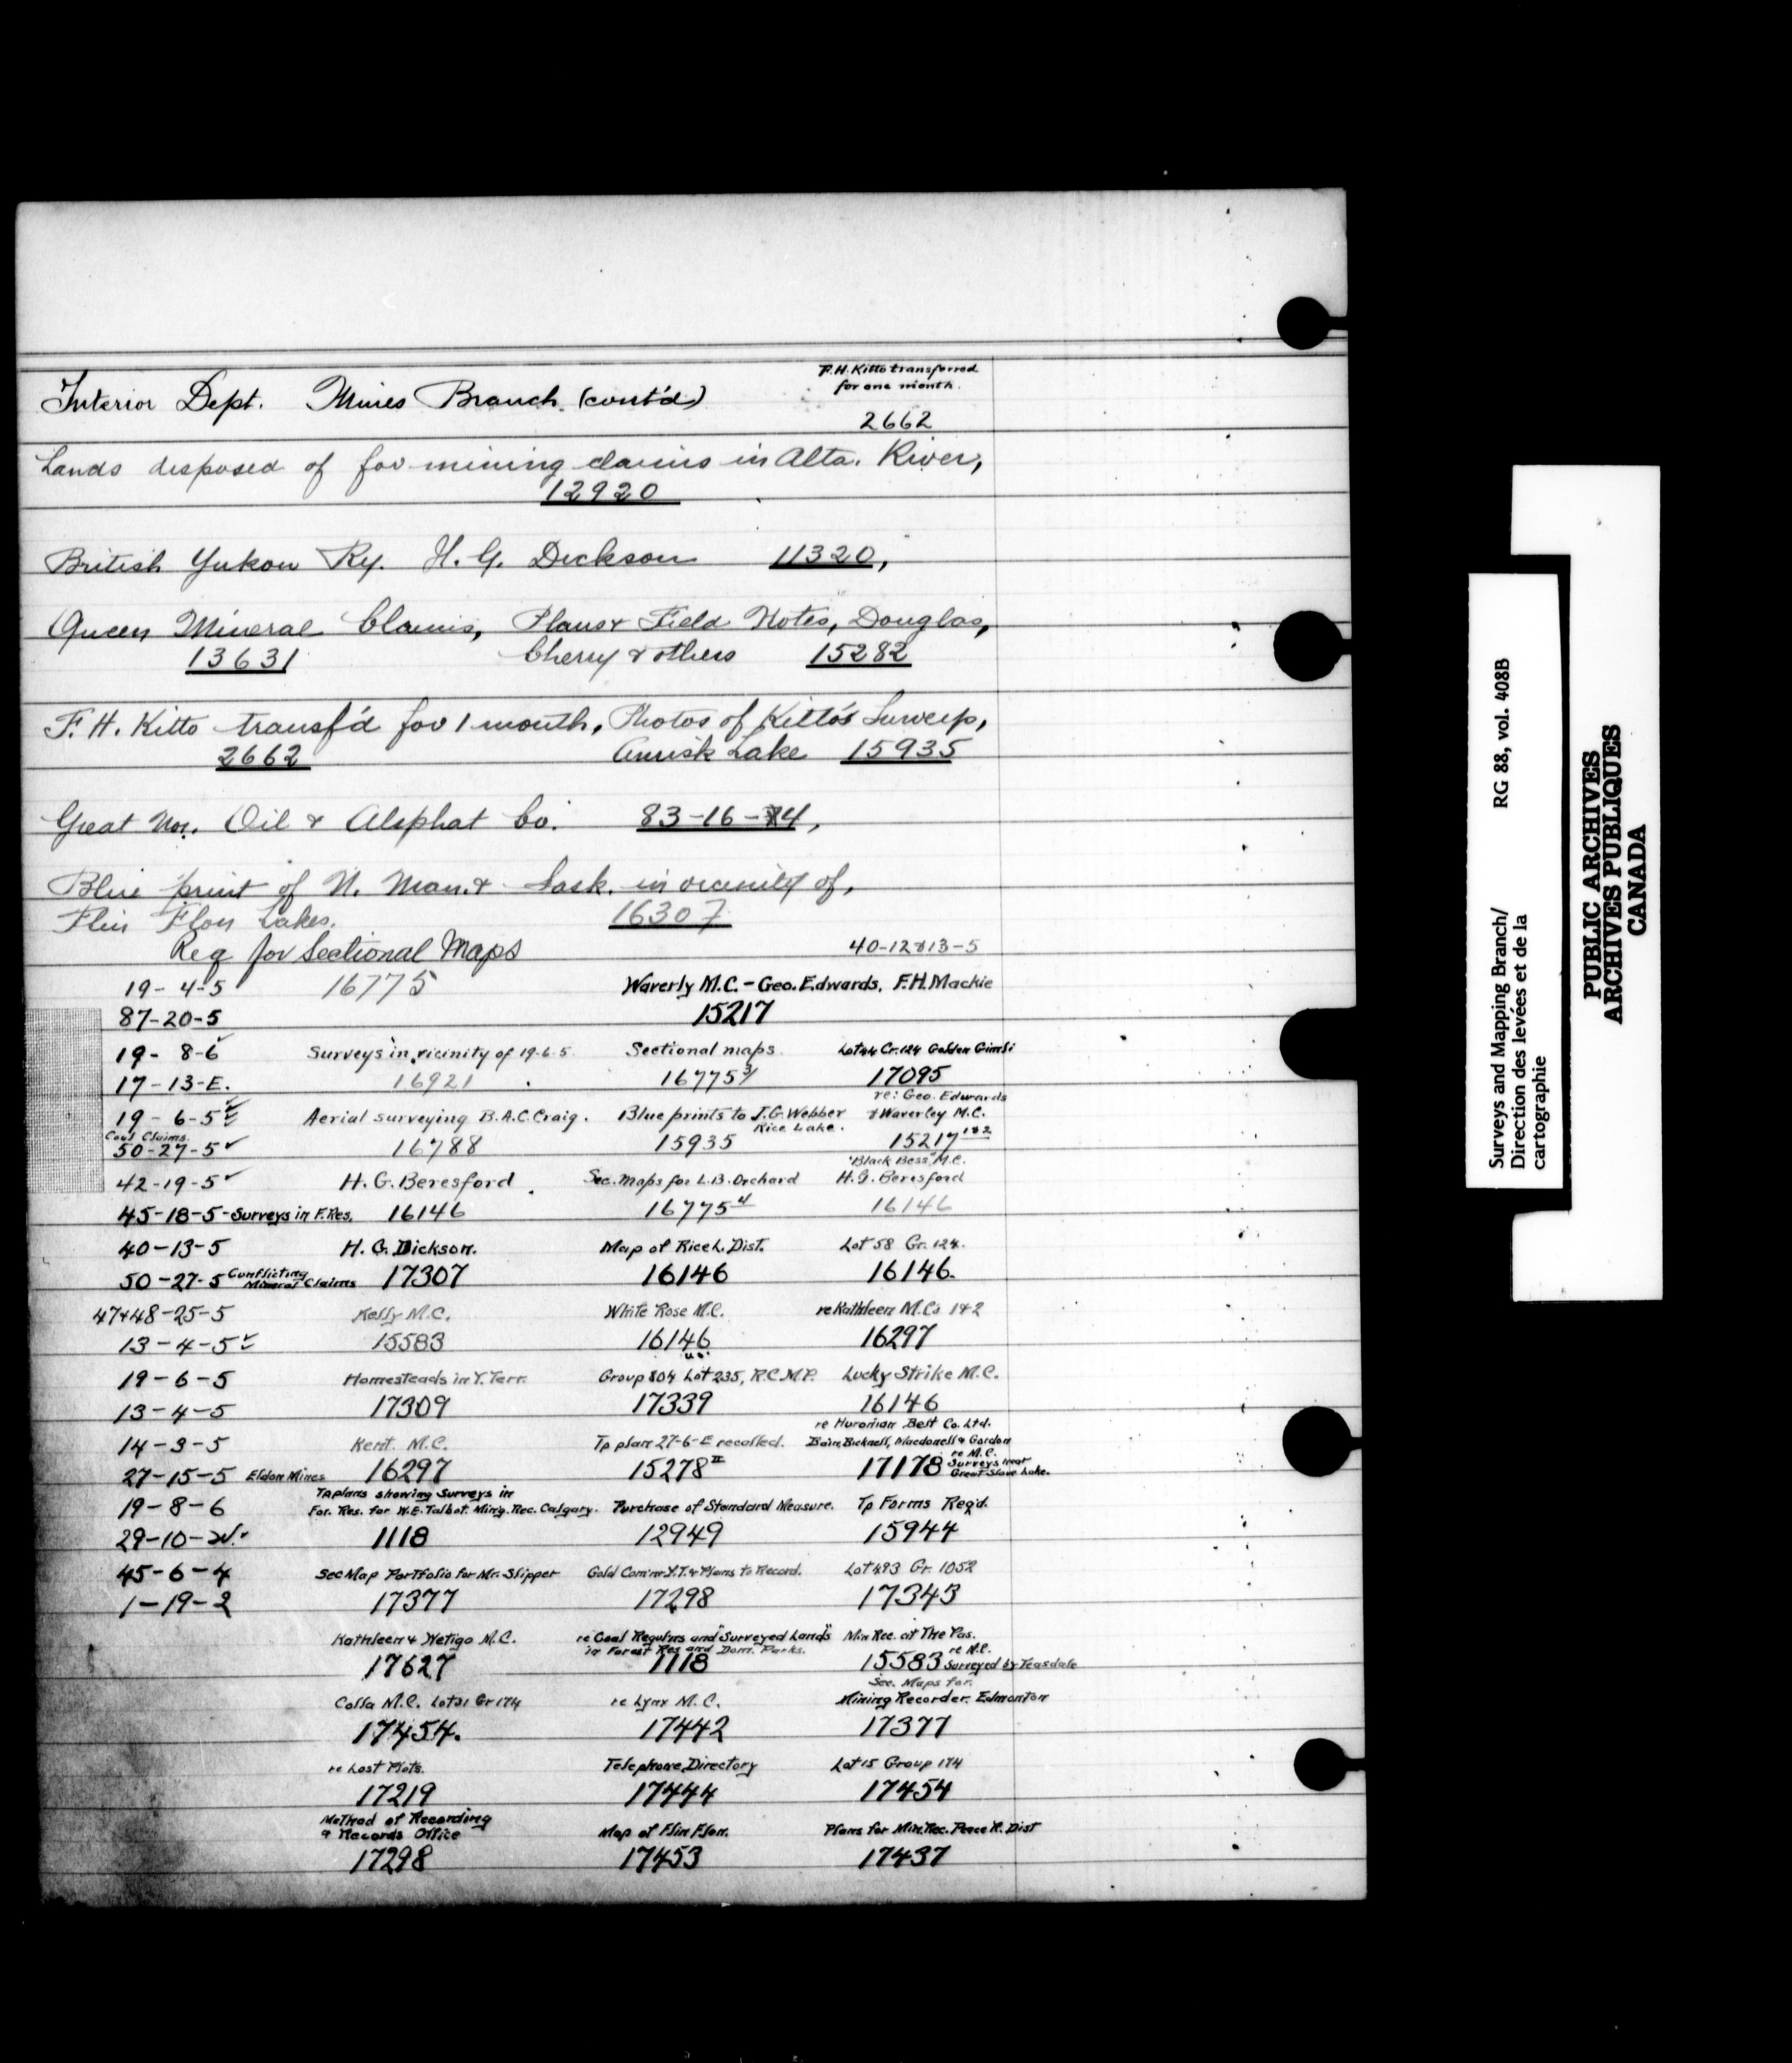 Interior Dept. Mines Branch (cont'd)
F.H. Kitto transferred
for one month.
2662
Lands disposed of for mining claims in Alta. River,
12920
British Yukon Ry. H. G. Dickson 11320,
Queen Mineral Claims, Plans & Field Notes, Douglas,
13631 Cherry & others 15282
F. H. Kitto transf'd for 1 month, Photos of Kitto's Surveys,
2662 Amisk Lake 15935
Great Nor. Oil & Alsphat Co. 83-16-4,
Blue print of N. Man. & Sask. in vicinity of,
Flin Flon Lakes. 16307
Req for Sectional Maps 40-12&13-5
19-4-5 16775 Waverly M.C. - Geo. Edwards, F.H. Mackie
87-20-5 15217
19-8-6 Surveys in vicinity of 19-6-5 Sectional maps. Lot 44 Gr. 124 Golden Gimli
17-13-E. 16921 16775³ 17095
re: Geo. Edwards
19-6-5 Aerial surveying B.A.C. Craig. Blue prints to J.G. Webber & Waverley M.C.
Coal Claims. Rice Lake.
50-27-5 16788 15935 15217 1&2
"Black Bess" M.C.
42-19-5 H. G. Beresford. Sec. Maps for L.B. Orchard H.G. Beresford
45-18-5-Surveys in F. Res. 16146 16775⁴ 16146
40-13-5 H. G. Dickson. Map of Rice L. Dist. Lot 58 Gr. 124.
50-27-5 Conflicting Mineral Claims 17307 16146 16146.
47&48-25-5 Kelly M.C. White Rose M.C. re Kathleen M.C's 1&2
13-4-5 15583 16146 16297
19-6-5 Homesteads in Y. Terr. Group 804 Lot 235, R.C.M.P. Lucky Strike M.C.
13-4-5 17309 17339 16146
re Huronian Belt Co. Ltd.
14-3-5 Kent. M.C. Tp plan 27-6-E recalled. Bain, Bicknell, Macdonell & Gordon
27-15-5 Eldon Mines 16297 15278 II 17178 re M.C. Surveys near Great Slave Lake.
Tp plans showing Surveys in
19-8-6 For. Res. for W.E. Talbot. Min'g. Rec. Calgary. Purchase of Standard Measure. Tp Forms Req'd.
29-10-W. 1118 12949 15944
45-6-4 Sec Map Portfolio for Mr. Slipper Gold Com'nr Y.T. & Plans to Record. Lot 493 Gr. 1052
1-19-2 17377 17298 17343
Kathleen & Wetigo M.C. re Coal Regulns and "Surveyed Lands" Min Rec. at The Pas.
in Forest Res and Dom. Parks. re M.C.
17627 1118 15583 Surveyed by Teasdale
Sec. Maps for
Colla M.C. Lot 31 Gr 174 re Lynx M.C. Mining Recorder. Edmonton
17454. 17442 17377
re Lost Plots. Telephone Directory Lot 15 Group 174
17219 17444 17454
Method of Recording
& Records Office Map of Flin Flon. Plans for Min. Rec. Peace R. Dist
17298 17453 17437
Surveys and Mapping Branch/ RG 88, vol. 408B
Direction des levées et de la
cartographie
PUBLIC ARCHIVES
ARCHIVES PUBLIQUES
CANADA